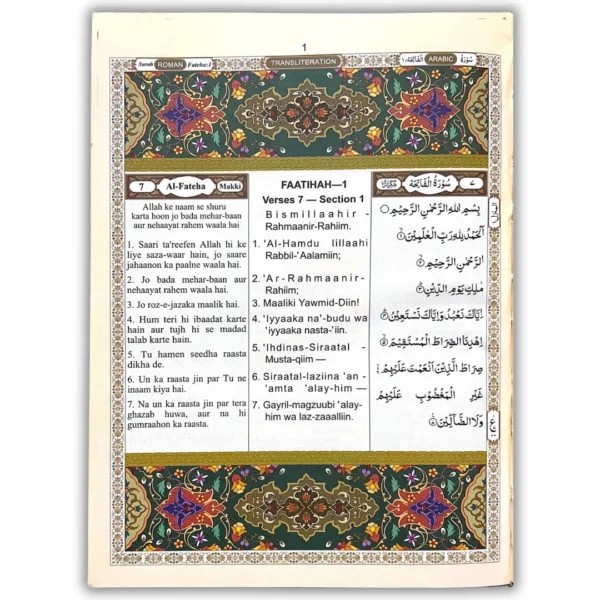 1
Surah ROMAN Fateha:1
TRANSLITERATION
سُوْرَةُ ARABIC الْفَاتِحَة:١
7 Al-Fateha Makki
Allah ke naam se shuru
karta hoon jo bada mehar-baan
aur nehaayat rahem waala hai
1. Saari ta'reefen Allah hi ke
liye sazaa-waar hain, jo saare
jahaanon ka paalne waala hai.
2. Jo bada mehar-baan aur
nehaayat rahem waala hai.
3. Jo roz-e-jazaka maalik hai.
4. Hum teri hi ibaadat karte
hain aur tujh hi se madad
talab karte hain.
5. Tu hamen seedha raasta
dikha de.
6. Un ka raasta jin par Tu ne
inaam kiya hai.
7. Na un ka raasta jin par tera
ghazab huwa, aur na hi
gumraahon ka raasta.
FAATIHAH—1
Verses 7 — Section 1
Bismillaahir -
Rahmaanir-Rahiim.
1. 'Al-Hamdu lillaahi
Rabbil-'Aalamiin;
2. 'Ar-Rahmaanir-
Rahiim;
3. Maaliki Yawmid-Diin!
4. 'Iyyaaka na'-budu wa
'iyyaaka nasta-'iin.
5. 'Ihdinas-Siraatal -
Musta-qiim —
6. Siraatal-laziina 'an -
'amta 'alay-him —
7. Gayril-magzuubi 'alay-
him wa laz-zaaalliin.
سُوْرَةُ الْفَاتِحَة ٧
بِسْمِ اللهِ الرَّحْمٰنِ الرَّحِيْمِ
اَلْحَمْدُ لِلّٰهِ رَبِّ الْعٰلَمِيْنَ ١
الرَّحْمٰنِ الرَّحِيْمِ ٢
مٰلِكِ يَوْمِ الدِّيْنِ ٣
اِيَّاكَ نَعْبُدُ وَاِيَّاكَ نَسْتَعِيْنُ ٤
اِهْدِنَا الصِّرَاطَ الْمُسْتَقِيْمَ ٥
صِرَاطَ الَّذِيْنَ اَنْعَمْتَ عَلَيْهِمْ
غَيْرِ الْمَغْضُوْبِ عَلَيْهِمْ
وَلَا الضَّآلِّيْنَ